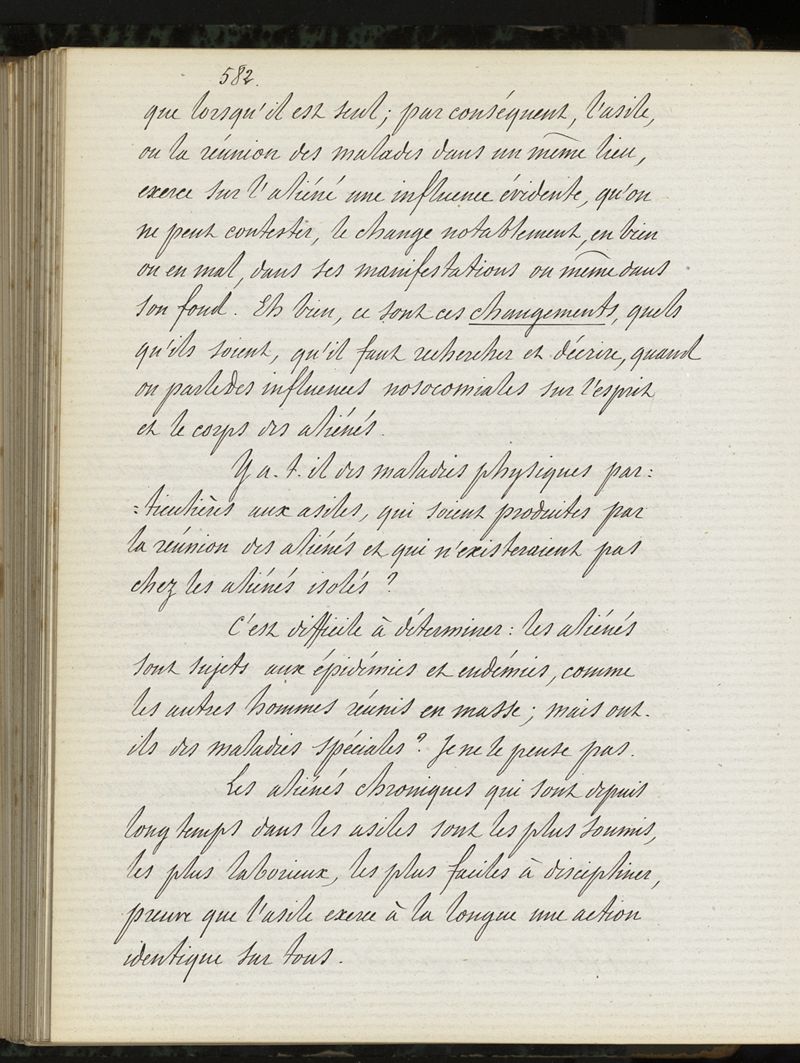 582.
que lorsqu'il est seul; par conséquent, l'asile,
ou la réunion des malades dans un même lieu,
exerce sur l'aliéné une influence évidente, qu'on
ne peut contester, le change notablement, en bien
ou en mal, dans ses manifestations ou même dans
son fond. Eh bien, ce sont ces changements, quels
qu'ils soient, qu'il faut rechercher et décrire, quand
on parle des influences nosocomiales sur l'esprit
et le corps des aliénés.
Y a-t-il des maladies physiques par=
=ticulières aux asiles, qui soient produites par
la réunion des aliénés et qui n'existeraient pas
chez les aliénés isolés ?
C'est difficile à déterminer : les aliénés
sont sujets aux épidémies et endémies, comme
les autres hommes réunis en masse ; mais ont-
ils des maladies spéciales ? Je ne le pense pas.
Les aliénés chroniques qui sont depuis
long temps dans les asiles sont les plus soumis,
les plus laborieux, les plus faciles à discipliner,
preuve que l'asile exerce à la longue une action
identique sur tous.